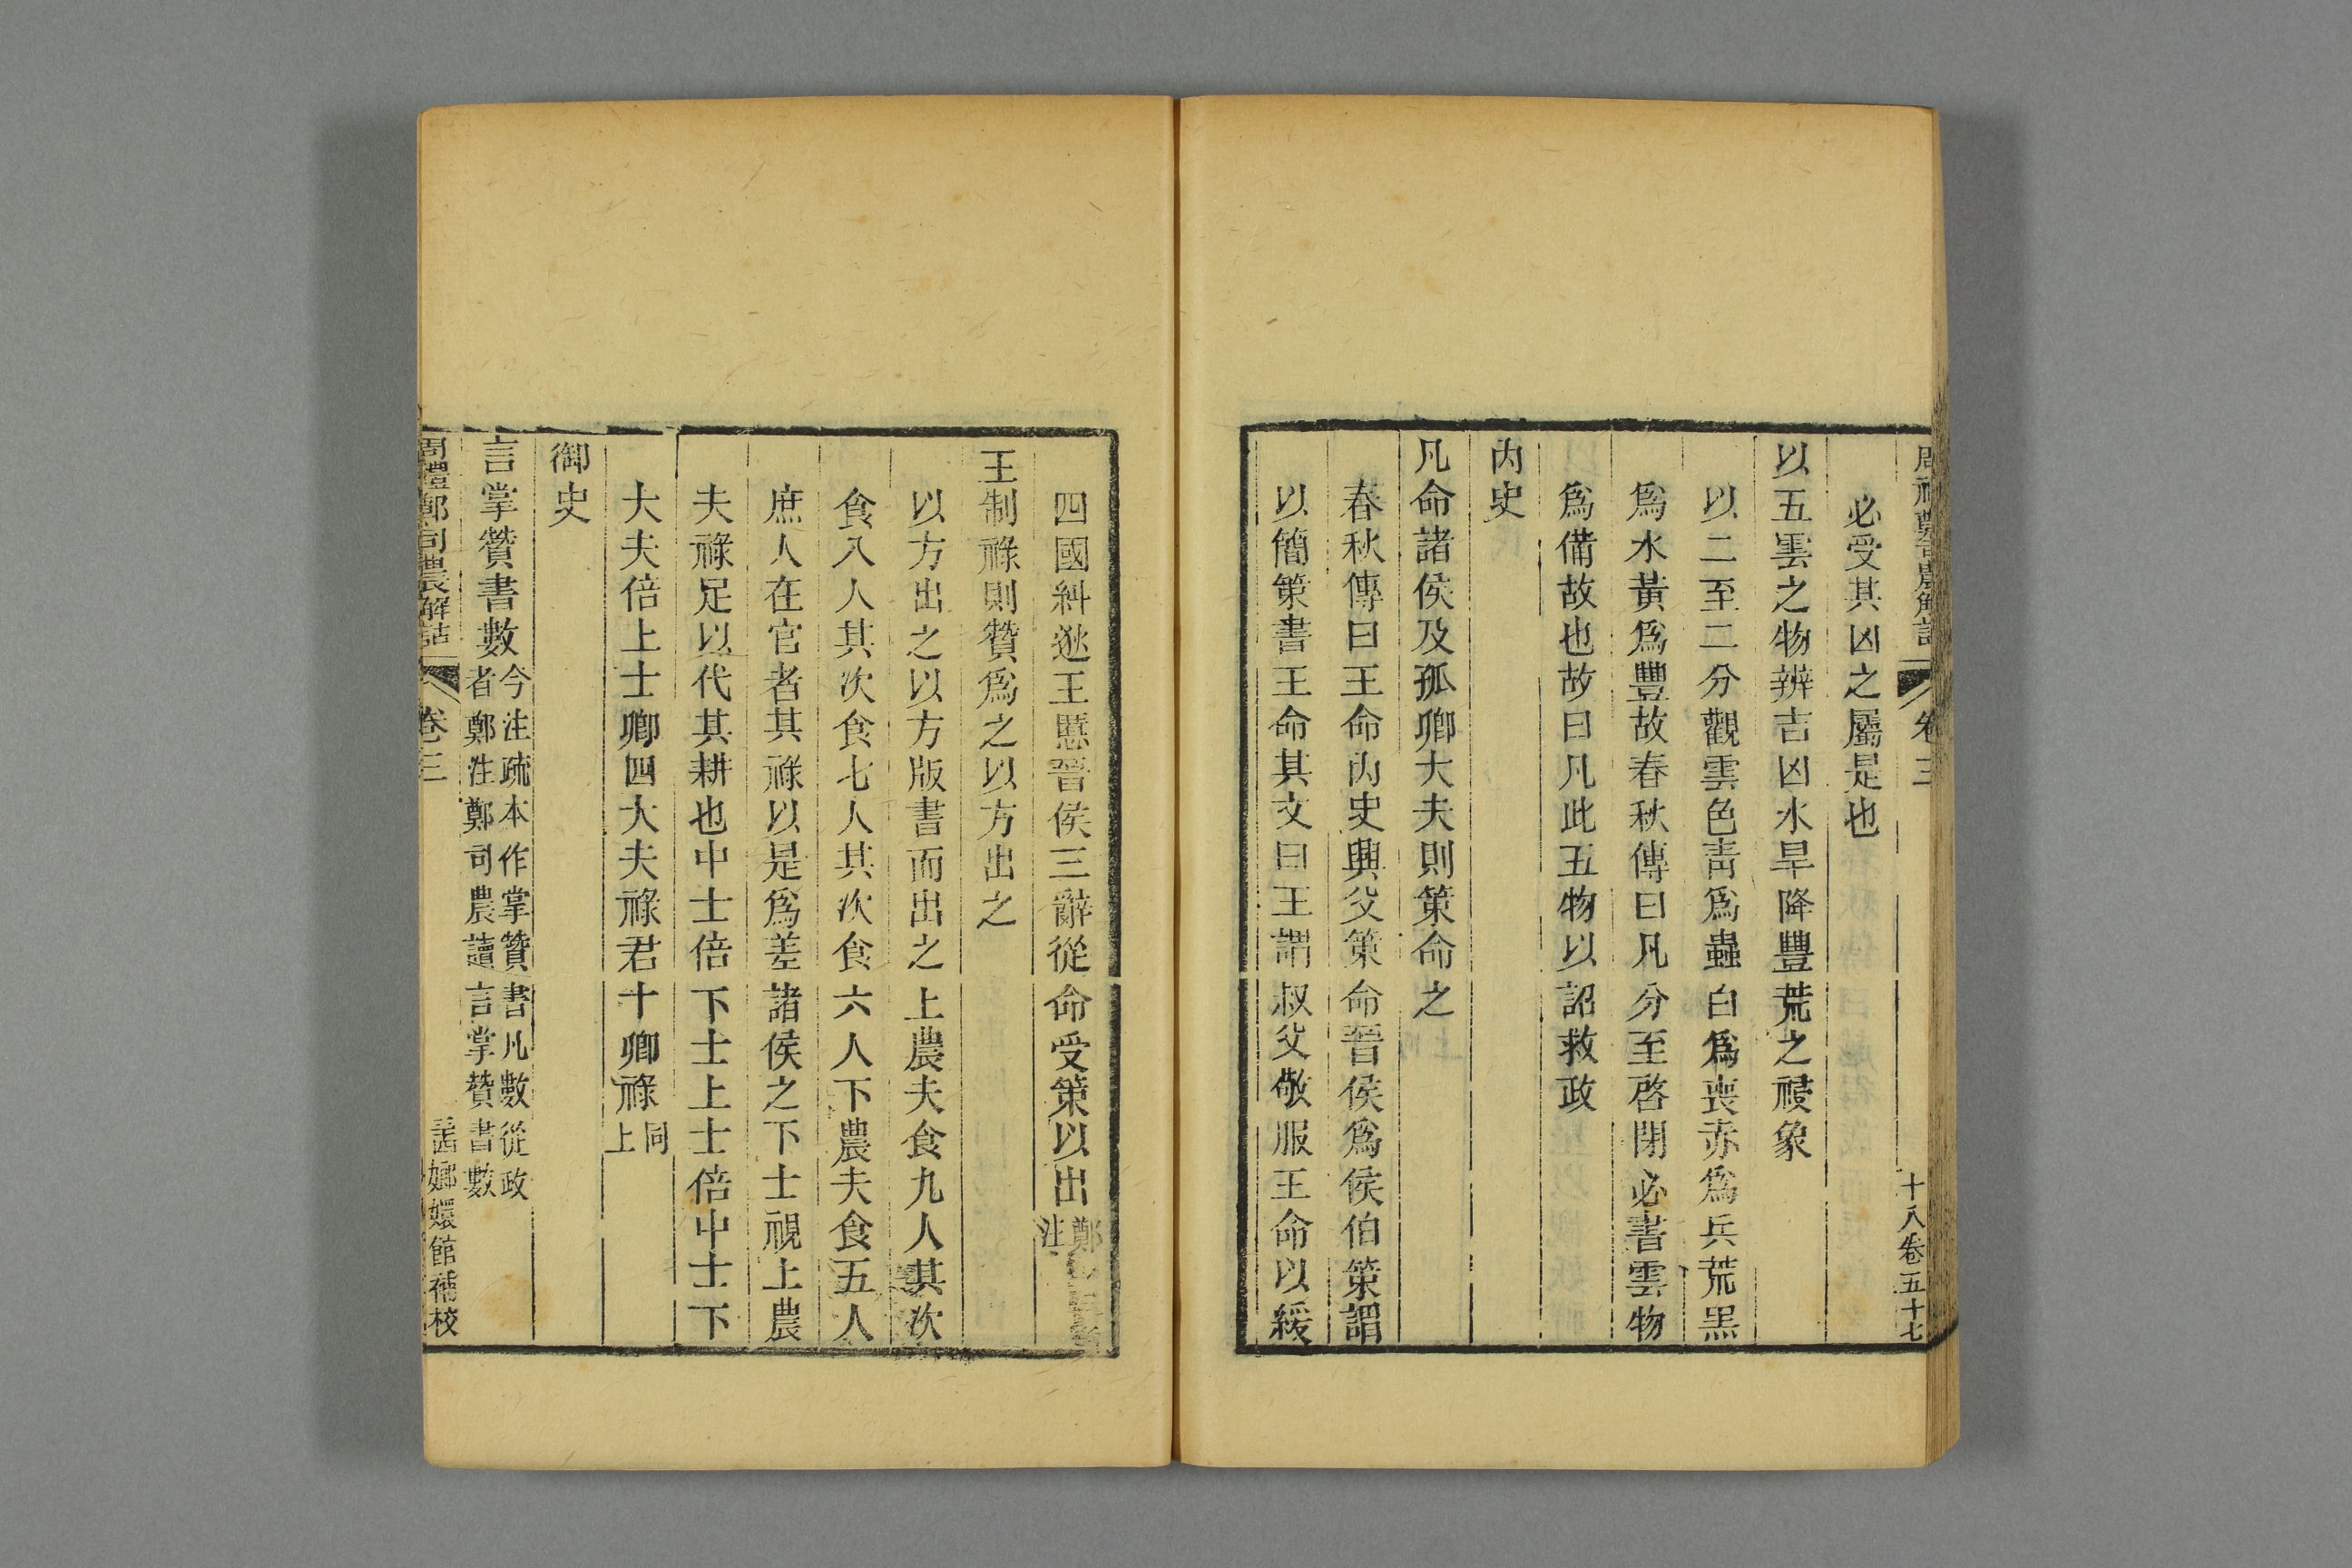 周禮鄭司農解詁 卷三 十八卷五十七
必受其凶之屬是也
以五雲之物辨吉凶水旱降豐荒之祲象
以二至二分觀雲色靑爲蟲白爲喪赤爲兵荒黑
爲水黃爲豐故春秋傳曰凡分至啓閉必書雲物
爲備故也故曰凡此五物以詔救政
內史
凡命諸侯及孤卿大夫則策命之
春秋傳曰王命內史興父策命晉侯爲侯伯策謂
以簡策書王命其文曰王謂叔父敬服王命以綏
四國糾逖王慝晉侯三辭從命受策以出鄭注
王制祿則贊爲之以方出之
以方出之以方版書而出之上農夫食九人其次
食八人其次食七人其次食六人下農夫食五人
庶人在官者其祿以是爲差諸侯之下士視上農
夫祿足以代其耕也中士倍下士上士倍中士下
大夫倍上士卿四大夫祿君十卿祿同上
御史
言掌贊書數今注疏本作掌贊書凡數從政
者鄭注鄭司農讀言掌贊書數
周禮鄭司農解詁 卷三 嫏嬛館補校